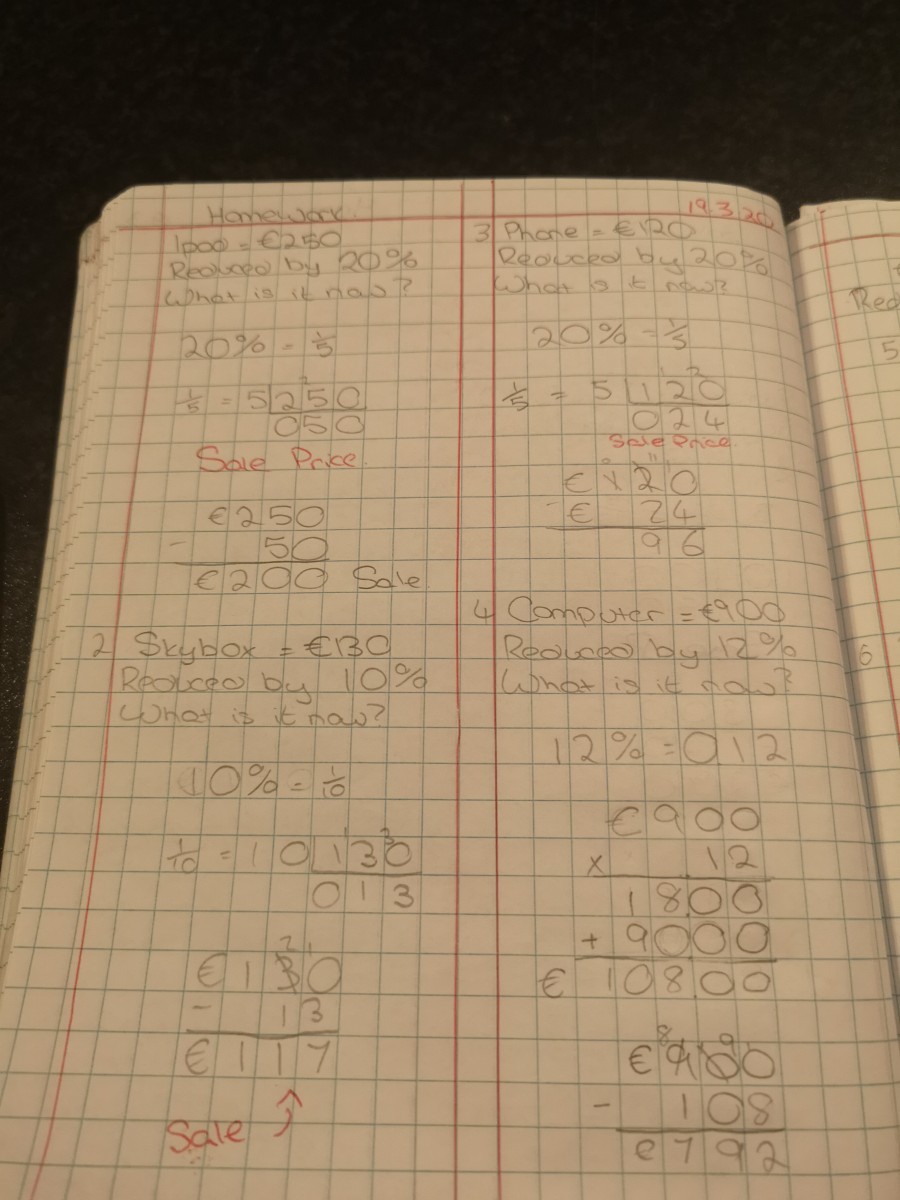 Homework
19.3.20
Ipod = €250
Reduced by 20%
What is it now?
20% = 1/5
1/5 = 5 250
050
Sale Price
€250
- 50
€200 Sale
2 Skybox = €130
Reduced by 10%
What is it now?
10% = 1/10
1/10 = 10 130
013
€130
- 13
€117
Sale
3 Phone = €120
Reduced by 20%
What is it now?
20% = 1/5
1/5 = 5 120
024
Sale Price
€120
- € 24
96
4 Computer = €900
Reduced by 12%
What is it now?
12% = 012
€900
x 12
1800
+ 9000
€ 10800
€900
- 108
€792
Red
5
6